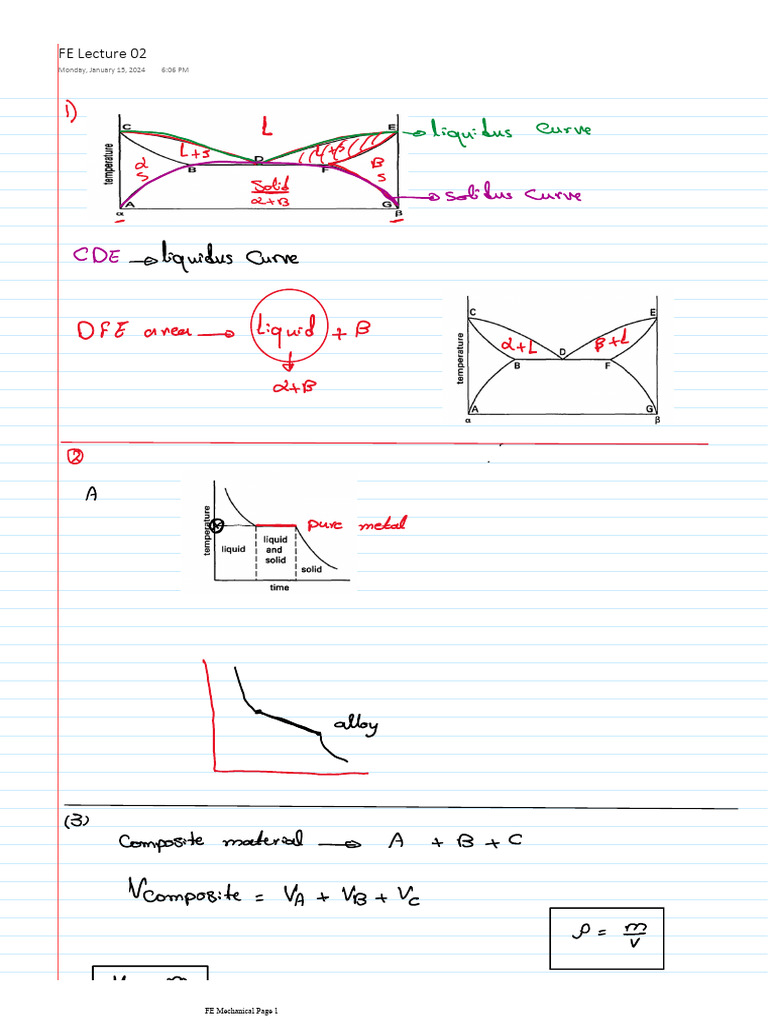 FE Lecture 02
Monday, January 15, 2024 6:06 PM
1)
L
C
E
liquidus curve
L+S
L+S
temperature
α
S
B
D
F
B
S
Solid
α+B
A
G
solidus curve
α
β
CDE → liquidus curve
DFE area → liquid + B
α+B
C
E
temperature
α+L
D
β+L
B
F
A
G
α
β
②
A
temperature
pure metal
liquid
liquid
and
solid
solid
time
alloy
(3)
Composite material → A + B + C
Vcomposite = VA + VB + VC
ρ = m/V
FE Mechanical Page 1